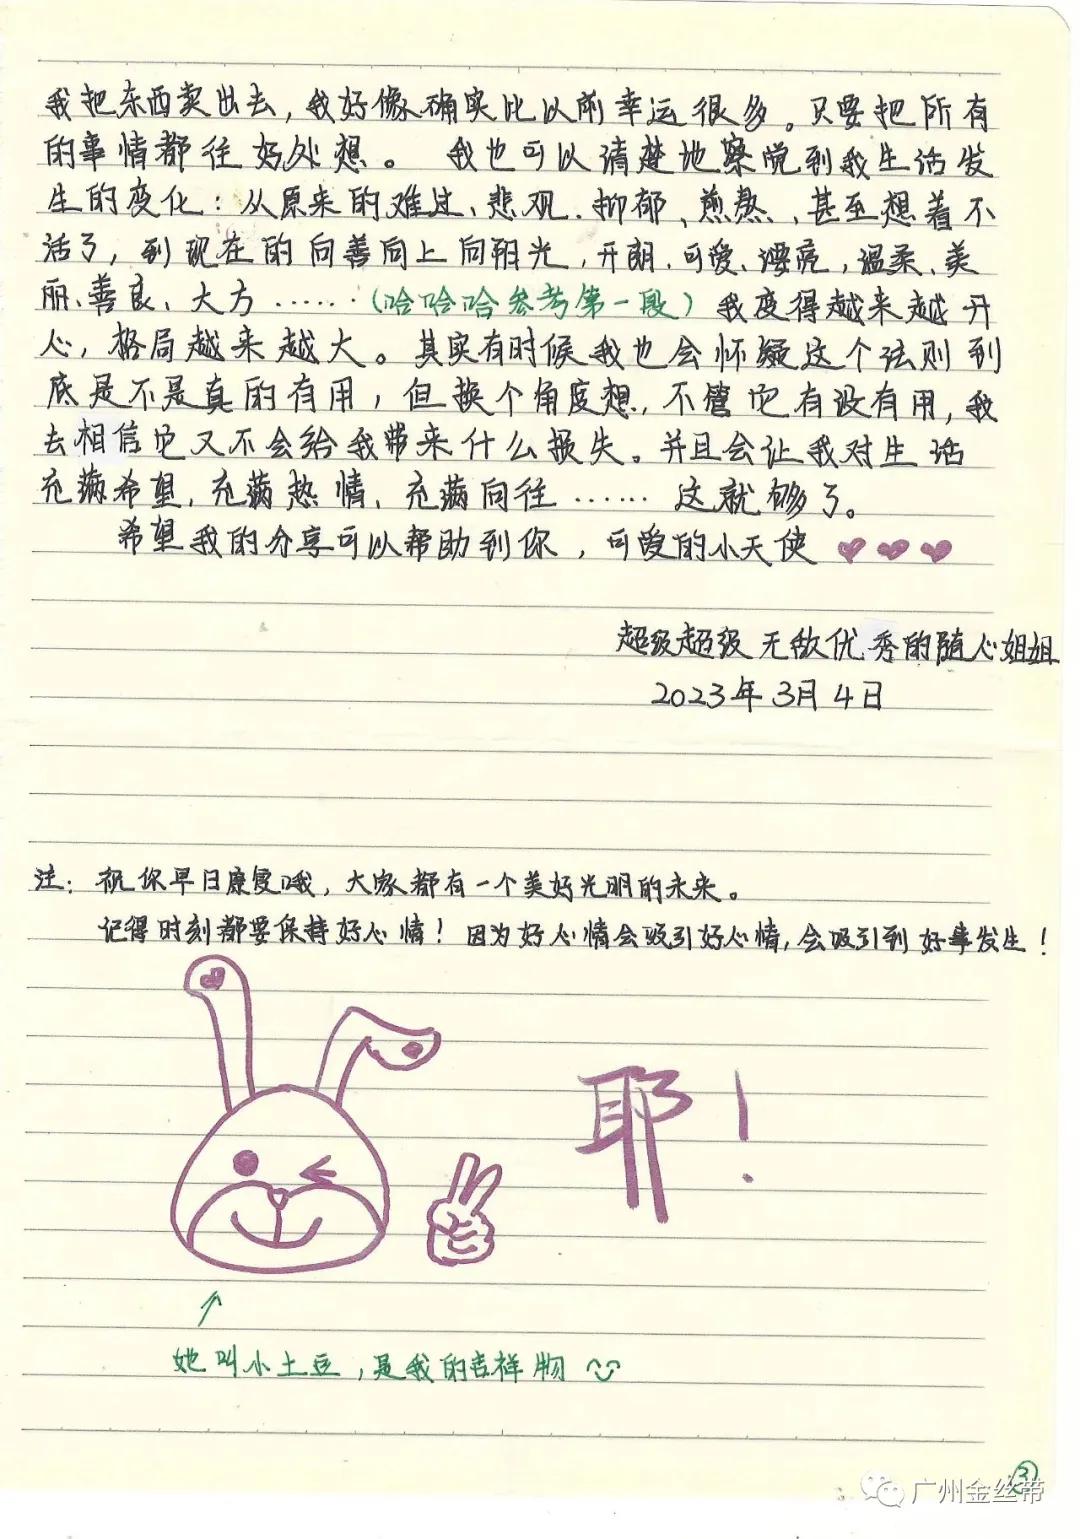 我把东西卖出去，我好像确实比以前幸运很多。只要把所有
的事情都往好处想。 我也可以清楚地察觉到我生活发
生的变化：从原来的难过、悲观、抑郁、煎熬、甚至想着不
活了，到现在的向善向上向阳光，开朗、可爱、漂亮，温柔、美
丽、善良、大方……（哈哈哈参考第一段）我变得越来越开
心，格局越来越大。其实有时候我也会怀疑这个法则到
底是不是真的有用，但换个角度想，不管它有没有用，我
去相信它又不会给我带来什么损失。并且会让我对生活
充满希望，充满热情，充满向往……这就够了。
希望我的分享可以帮助到你，可爱的小天使
超级超级无敌优秀的随心姐姐
2023年3月4日
注：祝你早日康复哦，大家都有一个美好光明的未来。
记得时刻都要保持好心情！因为好心情会吸引好心情，会吸引到好事发生！
耶！
她叫小土豆，是我的吉祥物
3
广州金丝带